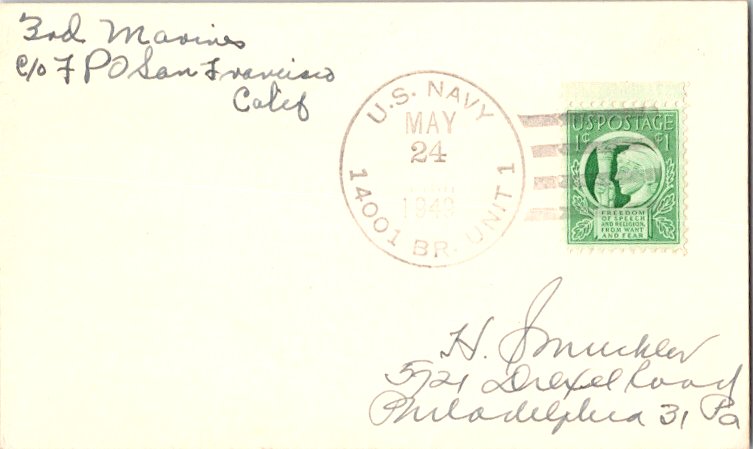 3rd Marines
c/o F PO San Francisco
Calif
U.S. NAVY
MAY
24
1943
14001 BR. UNIT 1
U.S. POSTAGE
1¢ ¢1
FREEDOM
OF SPEECH
AND RELIGION,
FROM WANT
AND FEAR
H.
5721 Drexel Road
Philadelphia 31 Pa